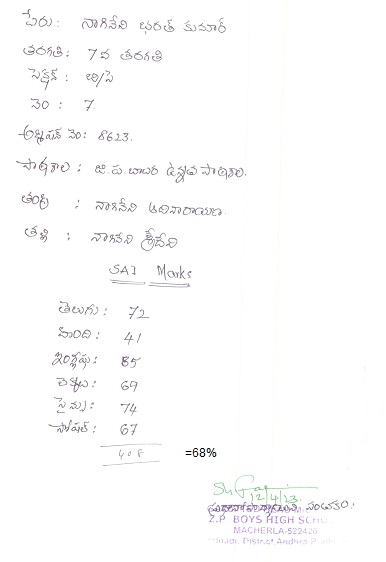 పేరు : నాగినేని భరత్ కుమార్
తరగతి : 7వ తరగతి
సెక్షన్ :
నెం : 7.
అడ్మిషన్ నెం: 8623.
పాఠశాల : జి.ప. బాలుర ఉన్నత పాఠశాల.
తండ్రి : నాగినేని ఆదినారాయణ.
తల్లి : నాగినేని శ్రీదేవి
SA1 Marks
తెలుగు : 72
హింది : 41
ఇంగ్లీషు : 85
లెక్కలు : 69
సైన్సు : 74
సోషల్ : 67
408 =68%
12/4/23
Z.P BOYS HIGH
MACHERLA-522426
District Andhra